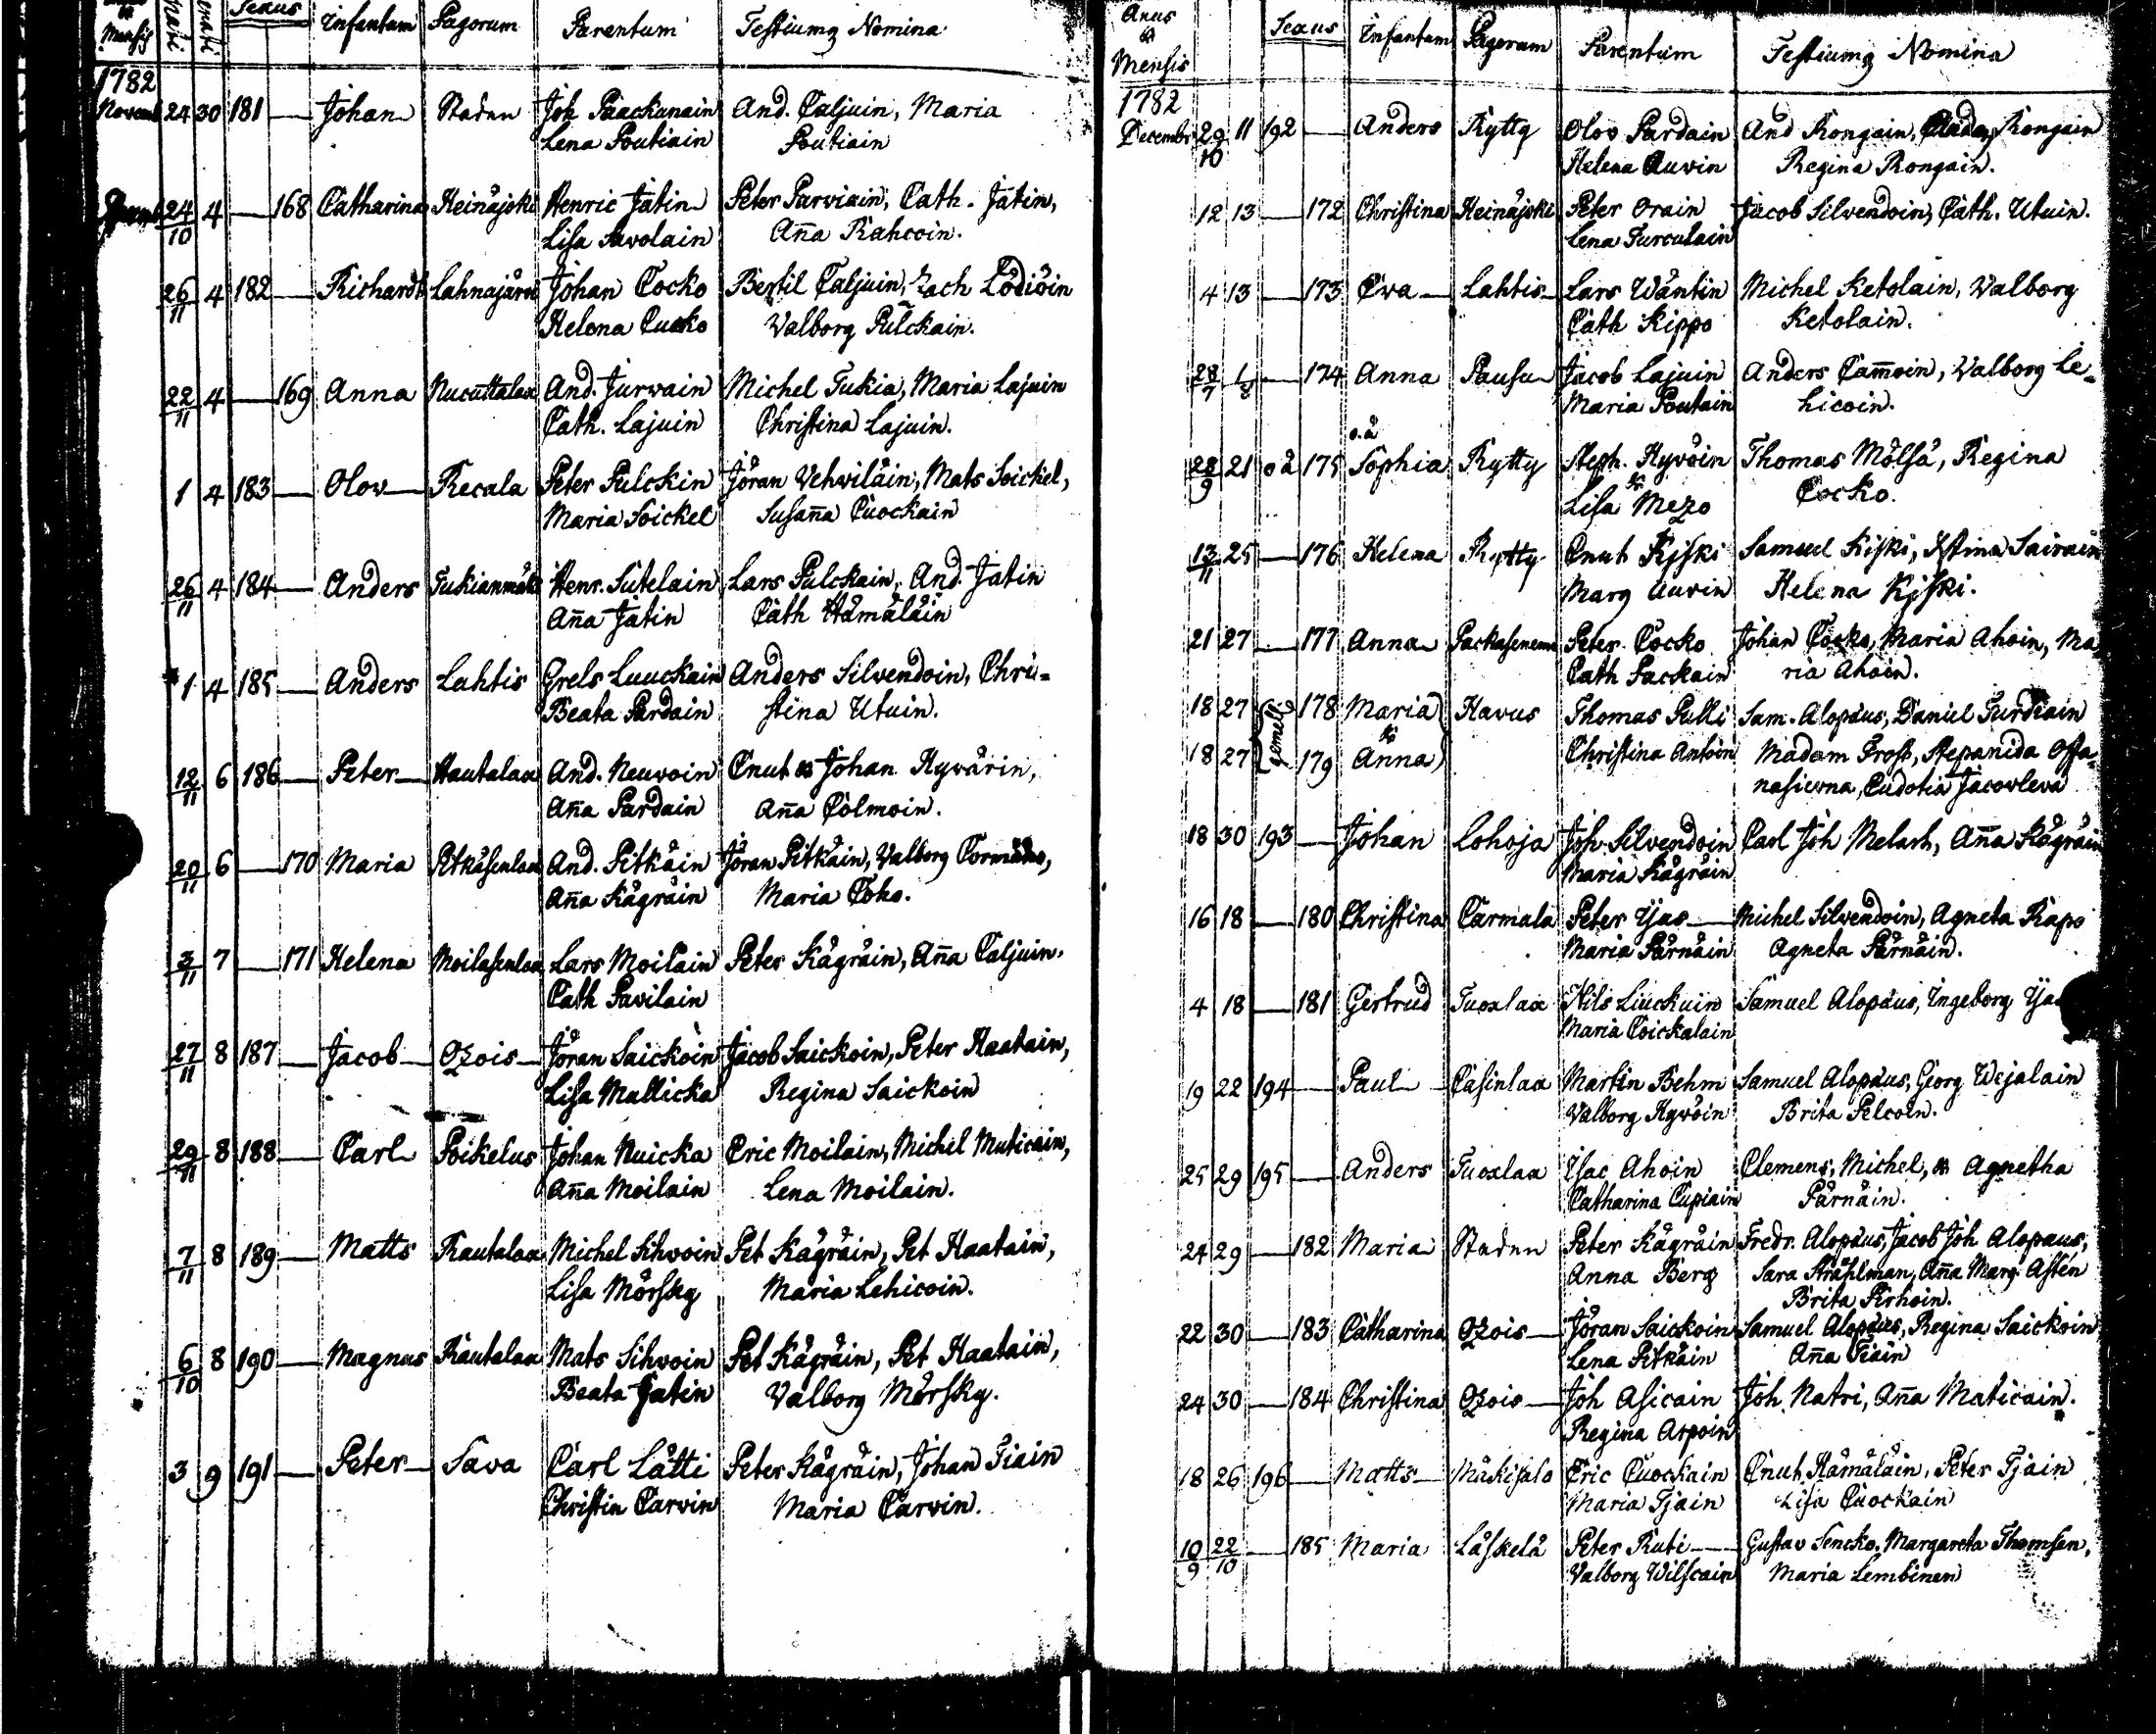 Mensis Sexus Infantum Pagorum Parentum Testiumq Nomina
1782
Novemb 24 30 181 — Johan Staden Joh Paackunain And. Caljuin, Maria
Lena Poutiain Poutiain
24/10 4 — 168 Catharina Heinäjoki Henric Jatin Peter Parviain, Cath. Jatin,
Lisa Savolain Aña Rahcoin.
26/11 4 182 — Richardt Lahnajärvi Johan Cocko Bertil Caljuin, Zach Lödiöin
Helena Cucko Valborg Pulckain.
22/11 4 — 169 Anna Nucuttalax And. Jurvain Michel Tukia, Maria Lajuin
Cath. Lajuin Christina Lajuin.
1 4 183 — Olov Recala Peter Pulckin Jöran Vehviläin, Mats Soickel,
Maria Soickel Susaña Cuockain
26/11 4 184 — Anders Tukianmäki Henr. Sutelain Lars Pulckain, And. Jatin
Aña Jatin Cath Hämäläin
1 4 185 — Anders Lahtis Grels Luuckain Anders Silvendoin, Chri=
Beata Pardain stina Utuin.
12/11 6 186 — Peter Hautalax And. Neuvoin Cnut & Johan Hyvärin,
Aña Pardain Aña Colmoin.
20/11 6 — 170 Maria Pitkäsenlax And. Pitkäin Jöran Pitkäin, Valborg
Aña Kägräin Maria Coho.
3/11 7 — 171 Helena Moilasenlax Lars Moilain Peter Kägräin, Aña Caljuin.
Cath Pavilain
27/11 8 187 — Jacob Ozois Jöran Saickoin Jacob Saickoin, Peter Haatain,
Lisa Mallicka Regina Saickoin
29/11 8 188 — Carl Poikelus Johan Nuicka Eric Moilain, Michel Muticain,
Aña Moilain Lena Moilain.
7/11 8 189 — Matts Rautalax Michel Sihvoin Pet Kägräin, Pet Haatain,
Lisa Mörsky Maria Lehicoin.
6/10 8 190 — Magnus Rautalax Mats Sihvoin Pet Kägräin, Pet Haatain,
Beata Jatin Valborg Mörsky.
3 9 191 — Peter Sava Carl Lätti Peter Kägräin, Johan Tiain
Christin Carvin Maria Carvin.
Anus & Mensis Sexus Infantum Pagorum Parentum Testiumq Nomina
1782
Decembr 29/10 11 192 — Anders Rytty Olov Pardain And Rongain, Rongain
Helena Auvin Regina Rongain.
12 13 — 172 Christina Heinäjoki Peter Orain Jacob Silvendoin, Cath. Utuin.
Lena Turculain
4 13 — 173 Eva Lahtis Lars Wäntin Michel Ketolain, Valborg
Cath Kippo Ketolain.
28/7 1/8 — 174 Anna Pausu Jacob Lajuin Anders Cam̃oin, Valborg Le=
Maria Poutain hicoin.
o.ä
28/9 21 oä 175 Sophia Rytty Steph. Hyvöin Thomas Mölsä, Regina
Lisa Mezo Cocko.
13/11 25 — 176 Helena Rytty Cnut Kiski Samuel Kiski, Stina Sairain
Marg Auvin Helena Kiski.
21 27 — 177 Anna Packasenema Peter Cocko Johan Cocko, Maria Ahoin, Ma
Cath Packain ria Ahoin.
18 27 gemelli 178 Maria Havus Thomas Pulli Sam. Alopäus, Daniel Turdiain
&
18 27 179 Anna Christina Antoin Madam Frost, Stepanida Offa
nasievna, Eudotia Jacovleva
18 30 193 — Johan Lohoja Joh Silvendoin Carl Joh Melart, Aña Kägräin
Maria Kägräin
16 18 — 180 Christina Carmala Peter Yas Michel Silvendoin, Agneta Rapo
Maria Pärnäin Agneta Pärnäin.
4 18 — 181 Gertrud Tuoxlax Nils Liuckuin Samuel Alopäus, Ingeborg
Maria Coickalain
19 22 194 — Paul Casinlax Martin Behm Samuel Alopäus, Georg Wejalain
Valborg Hyvöin Brita Pelcoin.
25 29 195 — Anders Tuoxlax Isac Ahoin Clemens, Michel, & Agnetha
Catharina Cupiain Pärnäin.
24 29 — 182 Maria Staden Peter Kägräin Fredr. Alopäus, Jacob Joh Alopäus,
Anna Berg Sara Strählman, Aña Marg Asten
Brita Pirhoin.
22 30 — 183 Catharina Ozois Jöran Saickoin Samuel Alopäus, Regina Saickoin
Lena Pitkäin Aña Tiain
24 30 — 184 Christina Ozois Joh Asicain Joh Natri, Aña Maticain.
Regina Arpoin
18 26 196 — Matts Mäkisalo Eric Cuockain Cnut Hämäläin, Peter Tjain
Maria Tjain Lisa Cuockain
10/9 22/10 — 185 Maria Läskelä Peter Ruti Gustav Sencko, Margareta Thomsen,
Valborg Wilscain Maria Lembinen